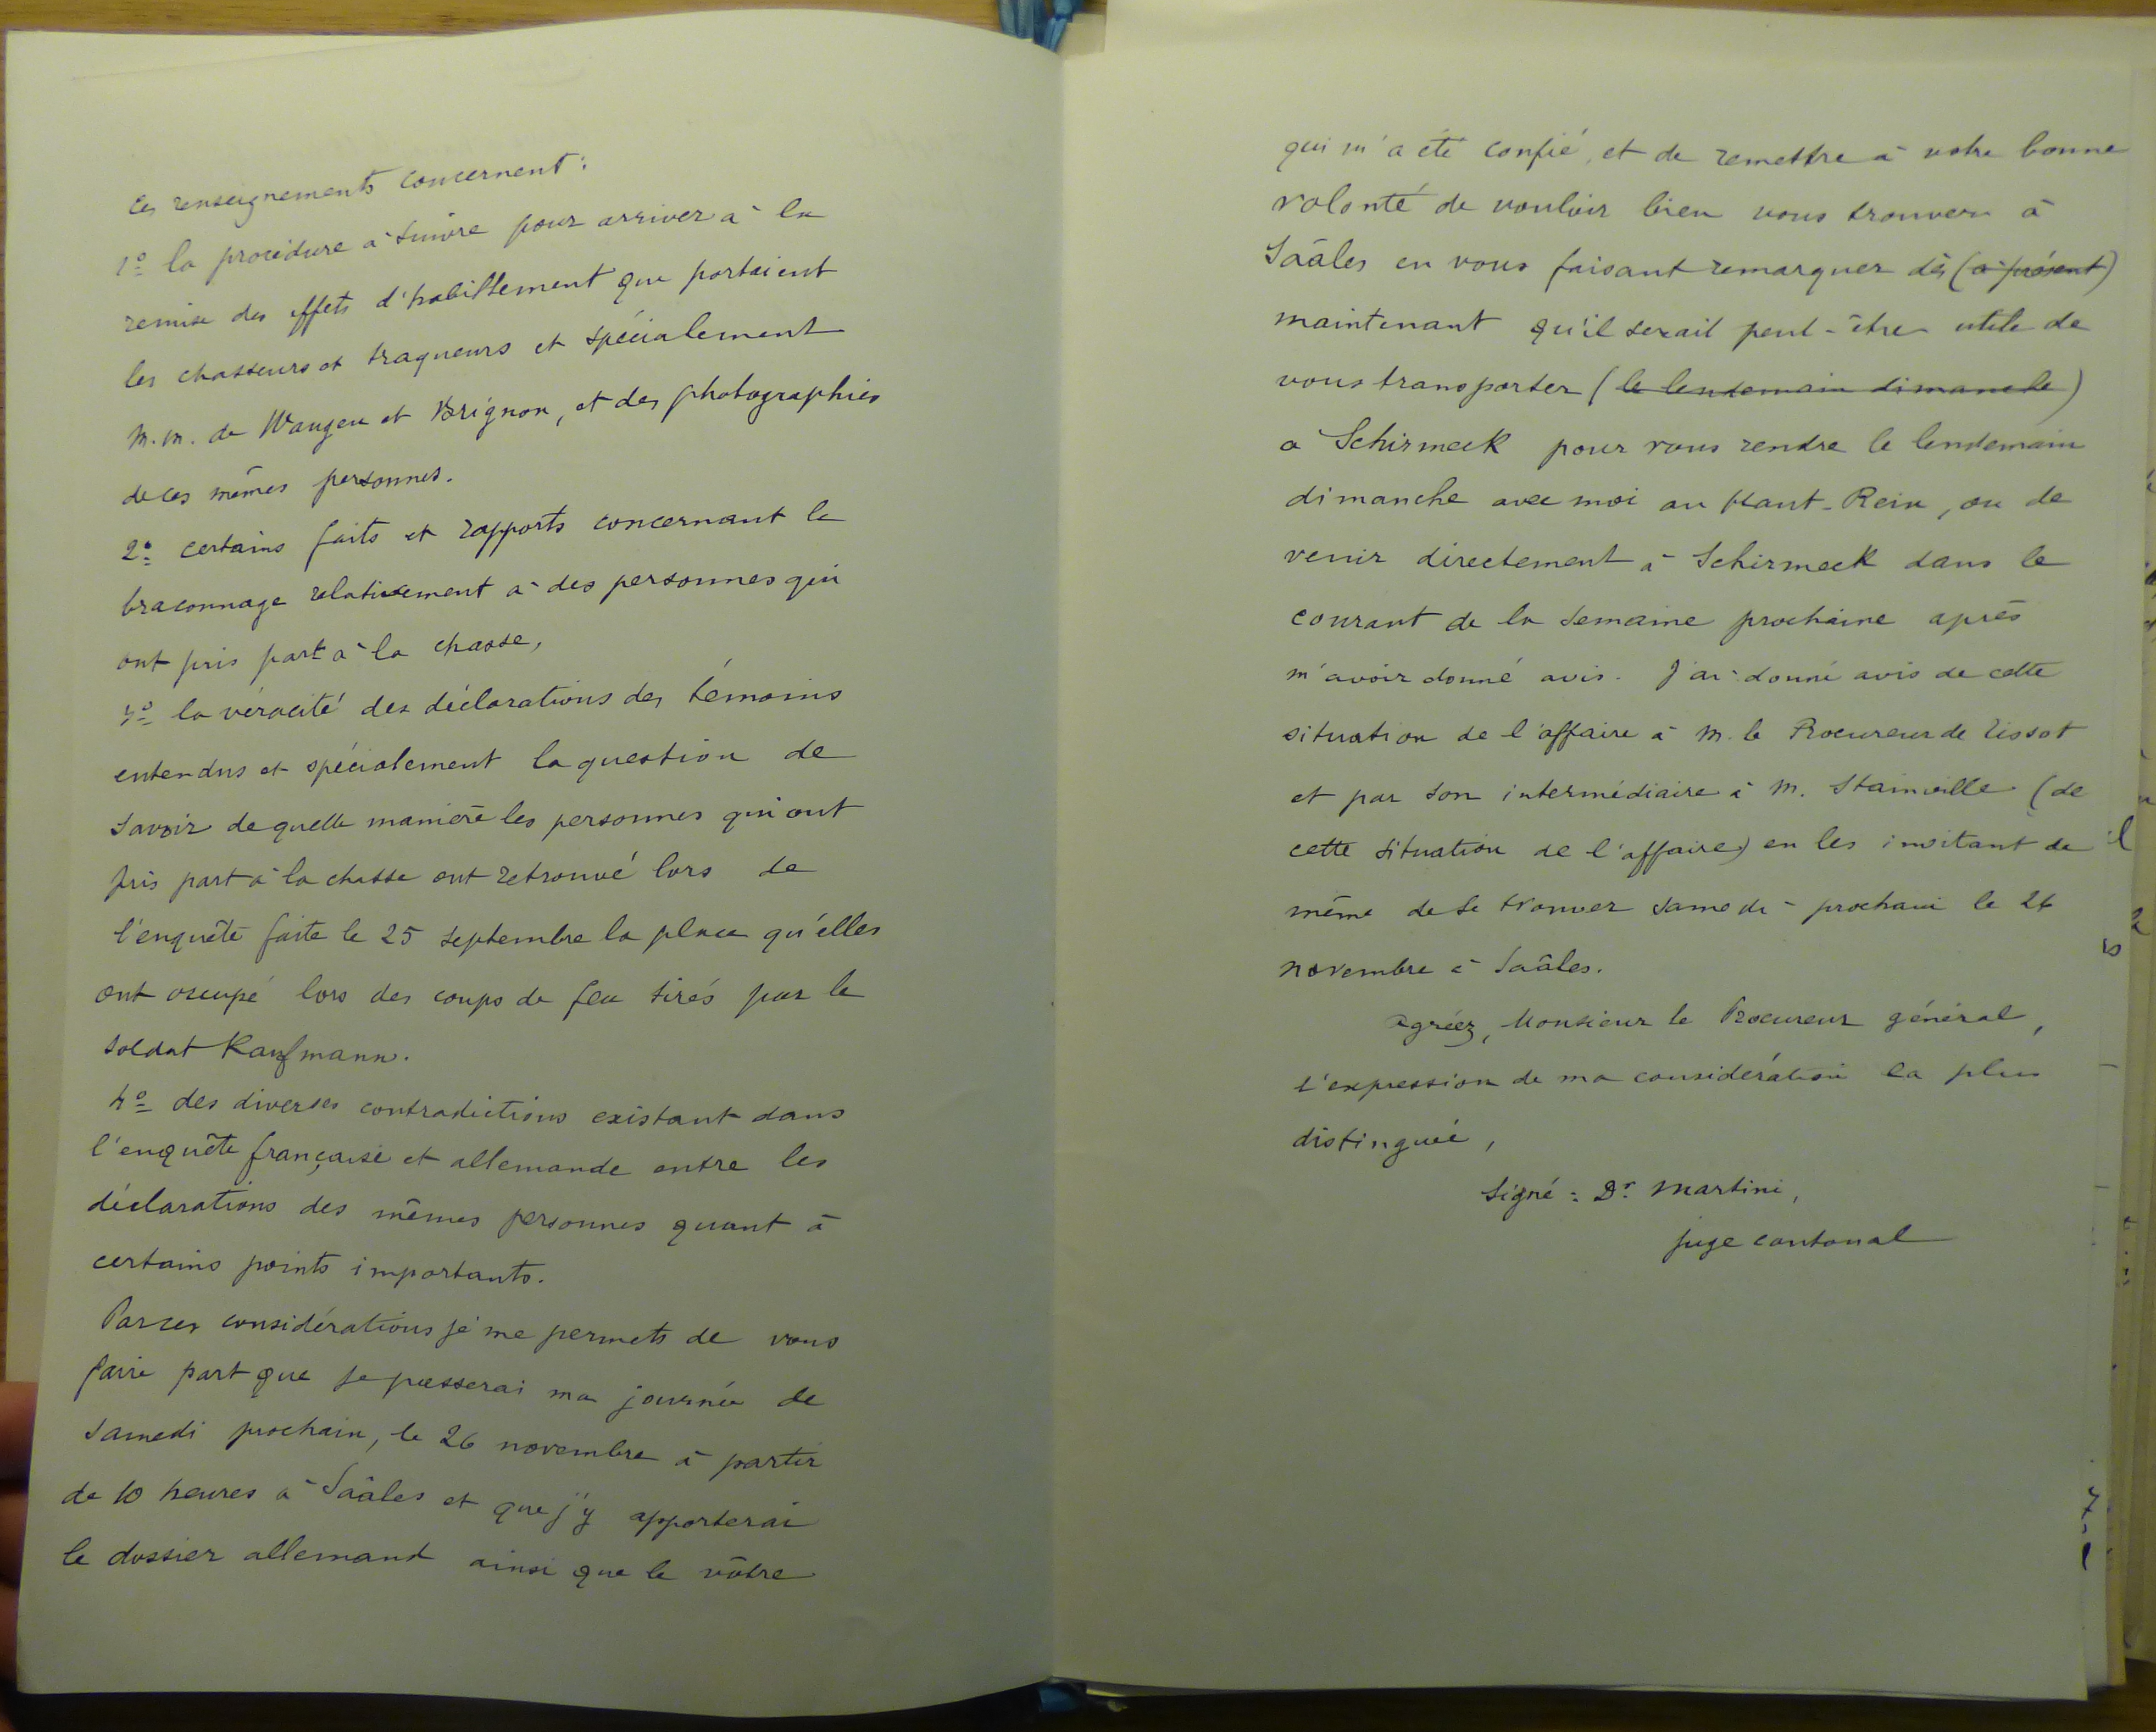 Ces renseignements concernent :
1º la procédure à suivre pour arriver à la
remise des effets d'habillement que portaient
les chasseurs et traqueurs et spécialement
M.M. de Wangen et Brignon, et des photographies
de ces mêmes personnes.
2º certains faits et rapports concernant le
braconnage relativement à des personnes qui
ont pris part à la chasse,
3º la véracité des déclarations des témoins
entendus et spécialement la question de
savoir de quelle manière les personnes qui ont
pris part à la chasse ont retrouvé lors de
l'enquête faite le 25 septembre la place qu'elles
ont occupé lors des coups de feu tirés par le
soldat Kaufmann.
4º des diverses contradictions existant dans
l'enquête française et allemande entre les
déclarations des mêmes personnes quant à
certains points importants.
Par ces considérations je me permets de vous
faire part que je passerai ma journée de
samedi prochain, le 26 novembre à partir
de 10 heures à Saâles et que j'y apporterai
le dossier allemand ainsi que le vôtre
qui m'a été confié, et de remettre à votre bonne
volonté de vouloir bien vous trouver à
Saâles en vous faisant remarquer dès (à présent)
maintenant qu'il serait peut-être utile de
vous transporter (le lendemain dimanche)
à Schirmeck pour vous rendre le lendemain
dimanche avec moi au Haut-Rein, ou de
venir directement à Schirmeck dans le
courant de la semaine prochaine après
m'avoir donné avis. J'ai donné avis de cette
situation de l'affaire à M. le Procureur de Tissot
et par son intermédiaire à M. Stainville (de
cette situation de l'affaire) en les invitant de
même de se trouver samedi prochain le 26
novembre à Saâles.
Agréez, Monsieur le Procureur général,
l'expression de ma considération la plus
distinguée,
Signé : Dr Martini,
juge cantonal